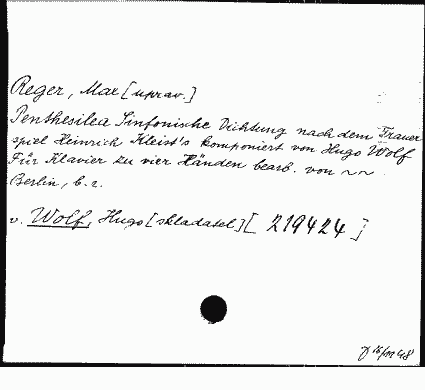 Reger, Max [uprav.]
Penthesilea Sinfonische Dichtung nach dem Trauer
spiel Heinrich Kleist's komponiert von Hugo Wolf
Für Klavier zu vier Händen bearb. von ~~
Berlin, b. r.
v. Wolf, Hugo [skladatel] [219424]